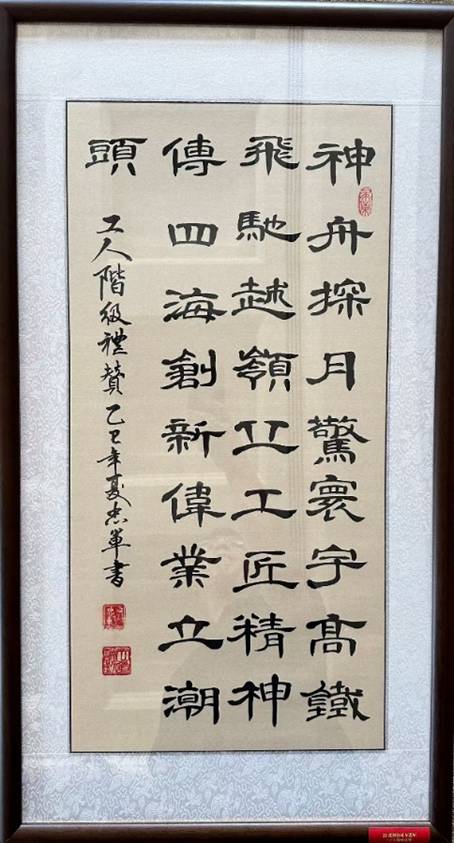 神舟探月驚寰宇高鐵
飛馳越嶺丘工匠精神
傳四海創新偉業立潮
頭
工人階級禮贊乙巳年夏忠軍書